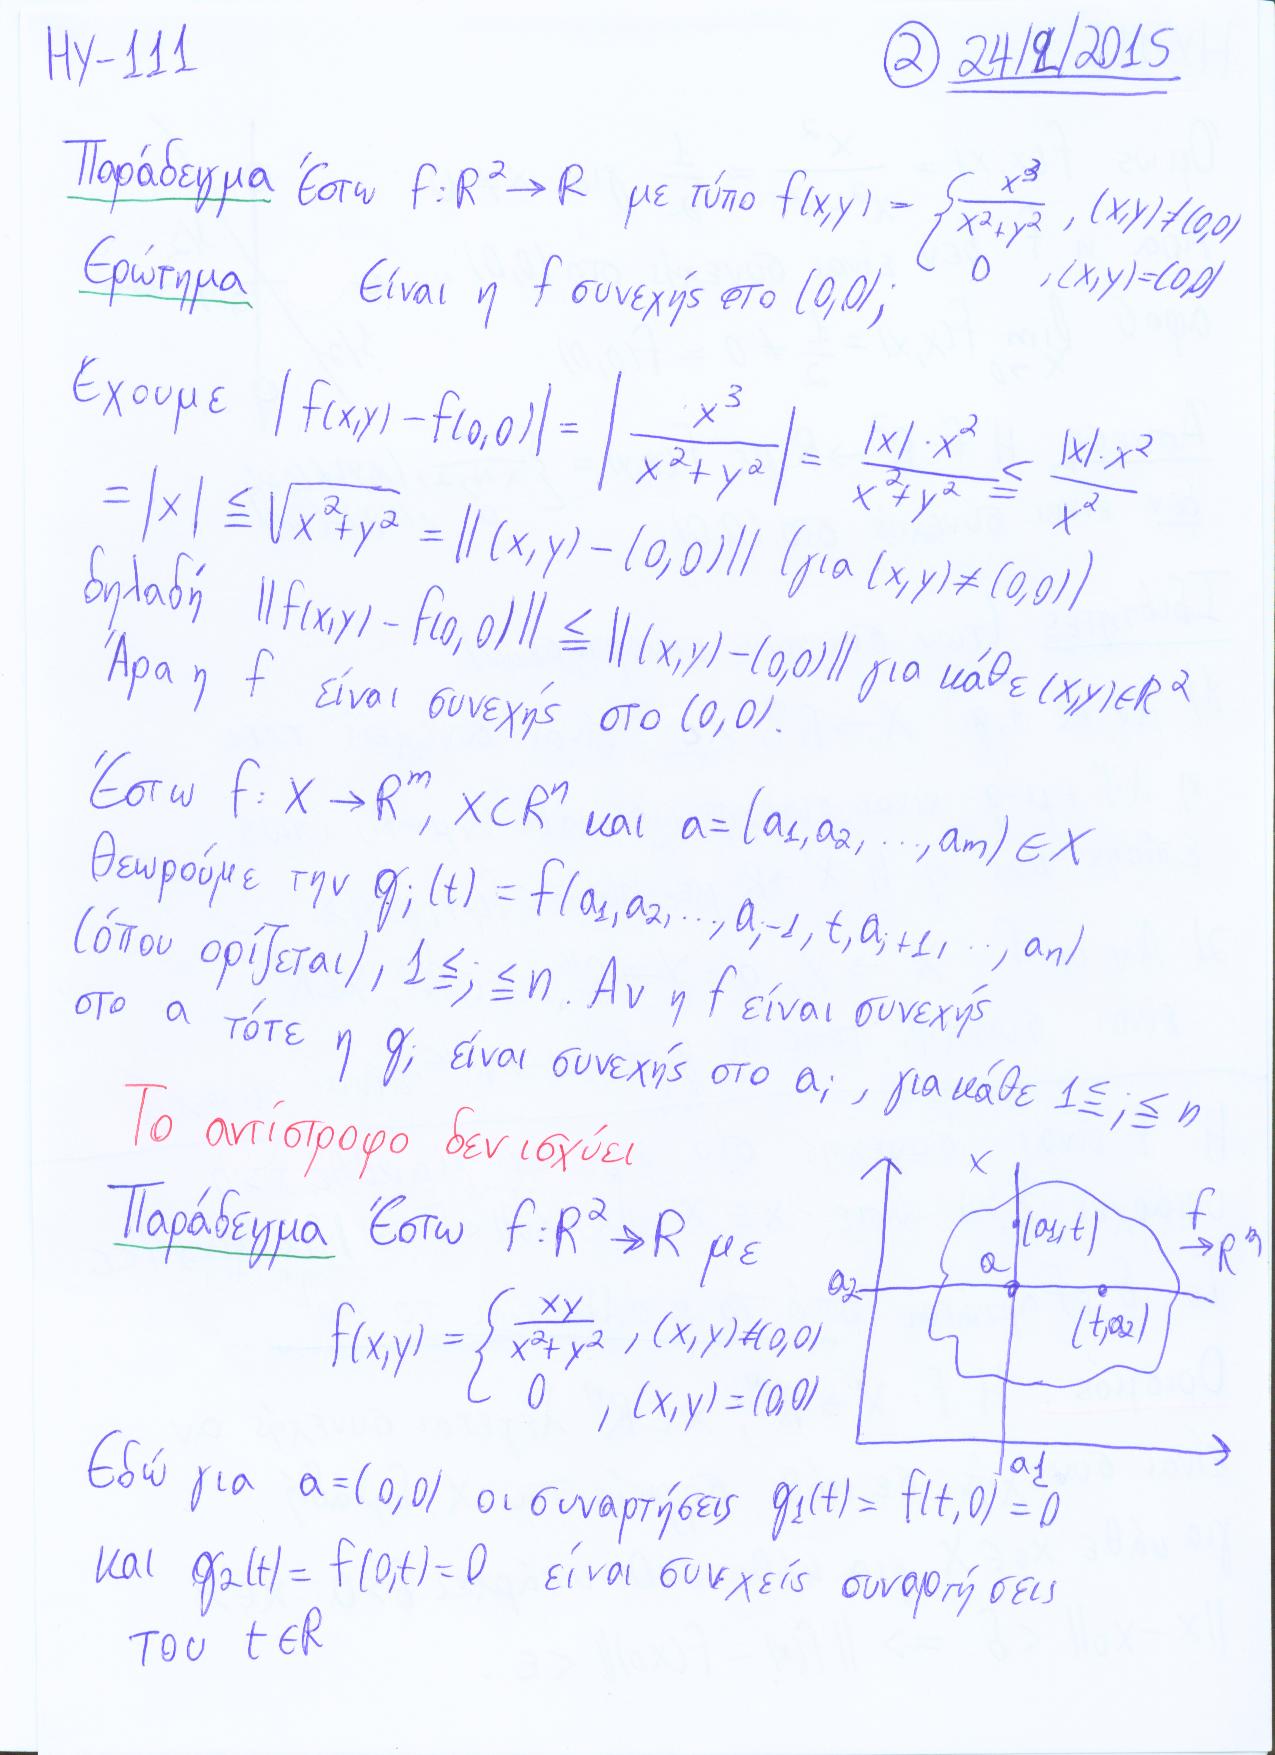 HY-111 ② 24/2/2015
Παράδειγμα Έστω f:R² → R με τύπο f(x,y) = { x³/(x²+y²) , (x,y)≠(0,0)
0 , (x,y)=(0,0)
Ερώτημα Είναι η f συνεχής στο (0,0);
Έχουμε |f(x,y) - f(0,0)| = |x³/(x²+y²)| = |x|·x²/(x²+y²) ≦ |x|·x²/x²
= |x| ≦ √(x²+y²) = ||(x,y) - (0,0)|| (για (x,y)≠(0,0))
δηλαδή ||f(x,y) - f(0,0)|| ≦ ||(x,y)-(0,0)|| για κάθε (x,y)∈R²
Άρα η f είναι συνεχής στο (0,0).
Έστω f: X → Rᵐ, X⊂Rⁿ και a=(a1,a2,...,am)∈X
θεωρούμε την gi(t) = f(a1,a2,...,ai-1,t,ai+1,...,an)
(όπου ορίζεται), 1≦i≦n. Αν η f είναι συνεχής
στο a τότε η gi είναι συνεχής στο ai, για κάθε 1≦i≦n
Το αντίστροφο δεν ισχύει
Παράδειγμα Έστω f:R² → R με
f(x,y) = { xy/(x²+y²) , (x,y)≠(0,0)
0 , (x,y)=(0,0)
X
(a1,t)
f
→Rᵐ
a
a2
(t,a2)
a1
Εδώ για a=(0,0) οι συναρτήσεις g1(t) = f(t,0) = 0
και g2(t) = f(0,t) = 0 είναι συνεχείς συναρτήσεις
του t∈R